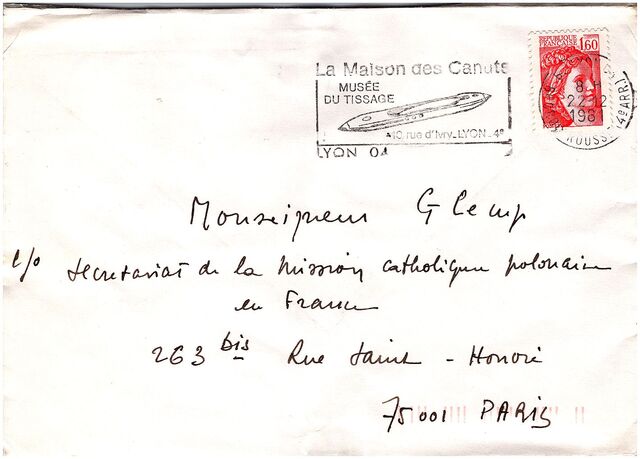 La Maison des Canuts
MUSÉE
DU TISSAGE
10, rue d'Ivry_LYON_4e
LYON 04
REPUBLIQUE FRANÇAISE 1,60
8 H
22-12
1981
ROUSSE (4e ARRT)
Monseigneur Glemp
c/o secretariat de la Mission catholique polonaise
en France
263 bis Rue Saint-Honoré
75001 PARIS